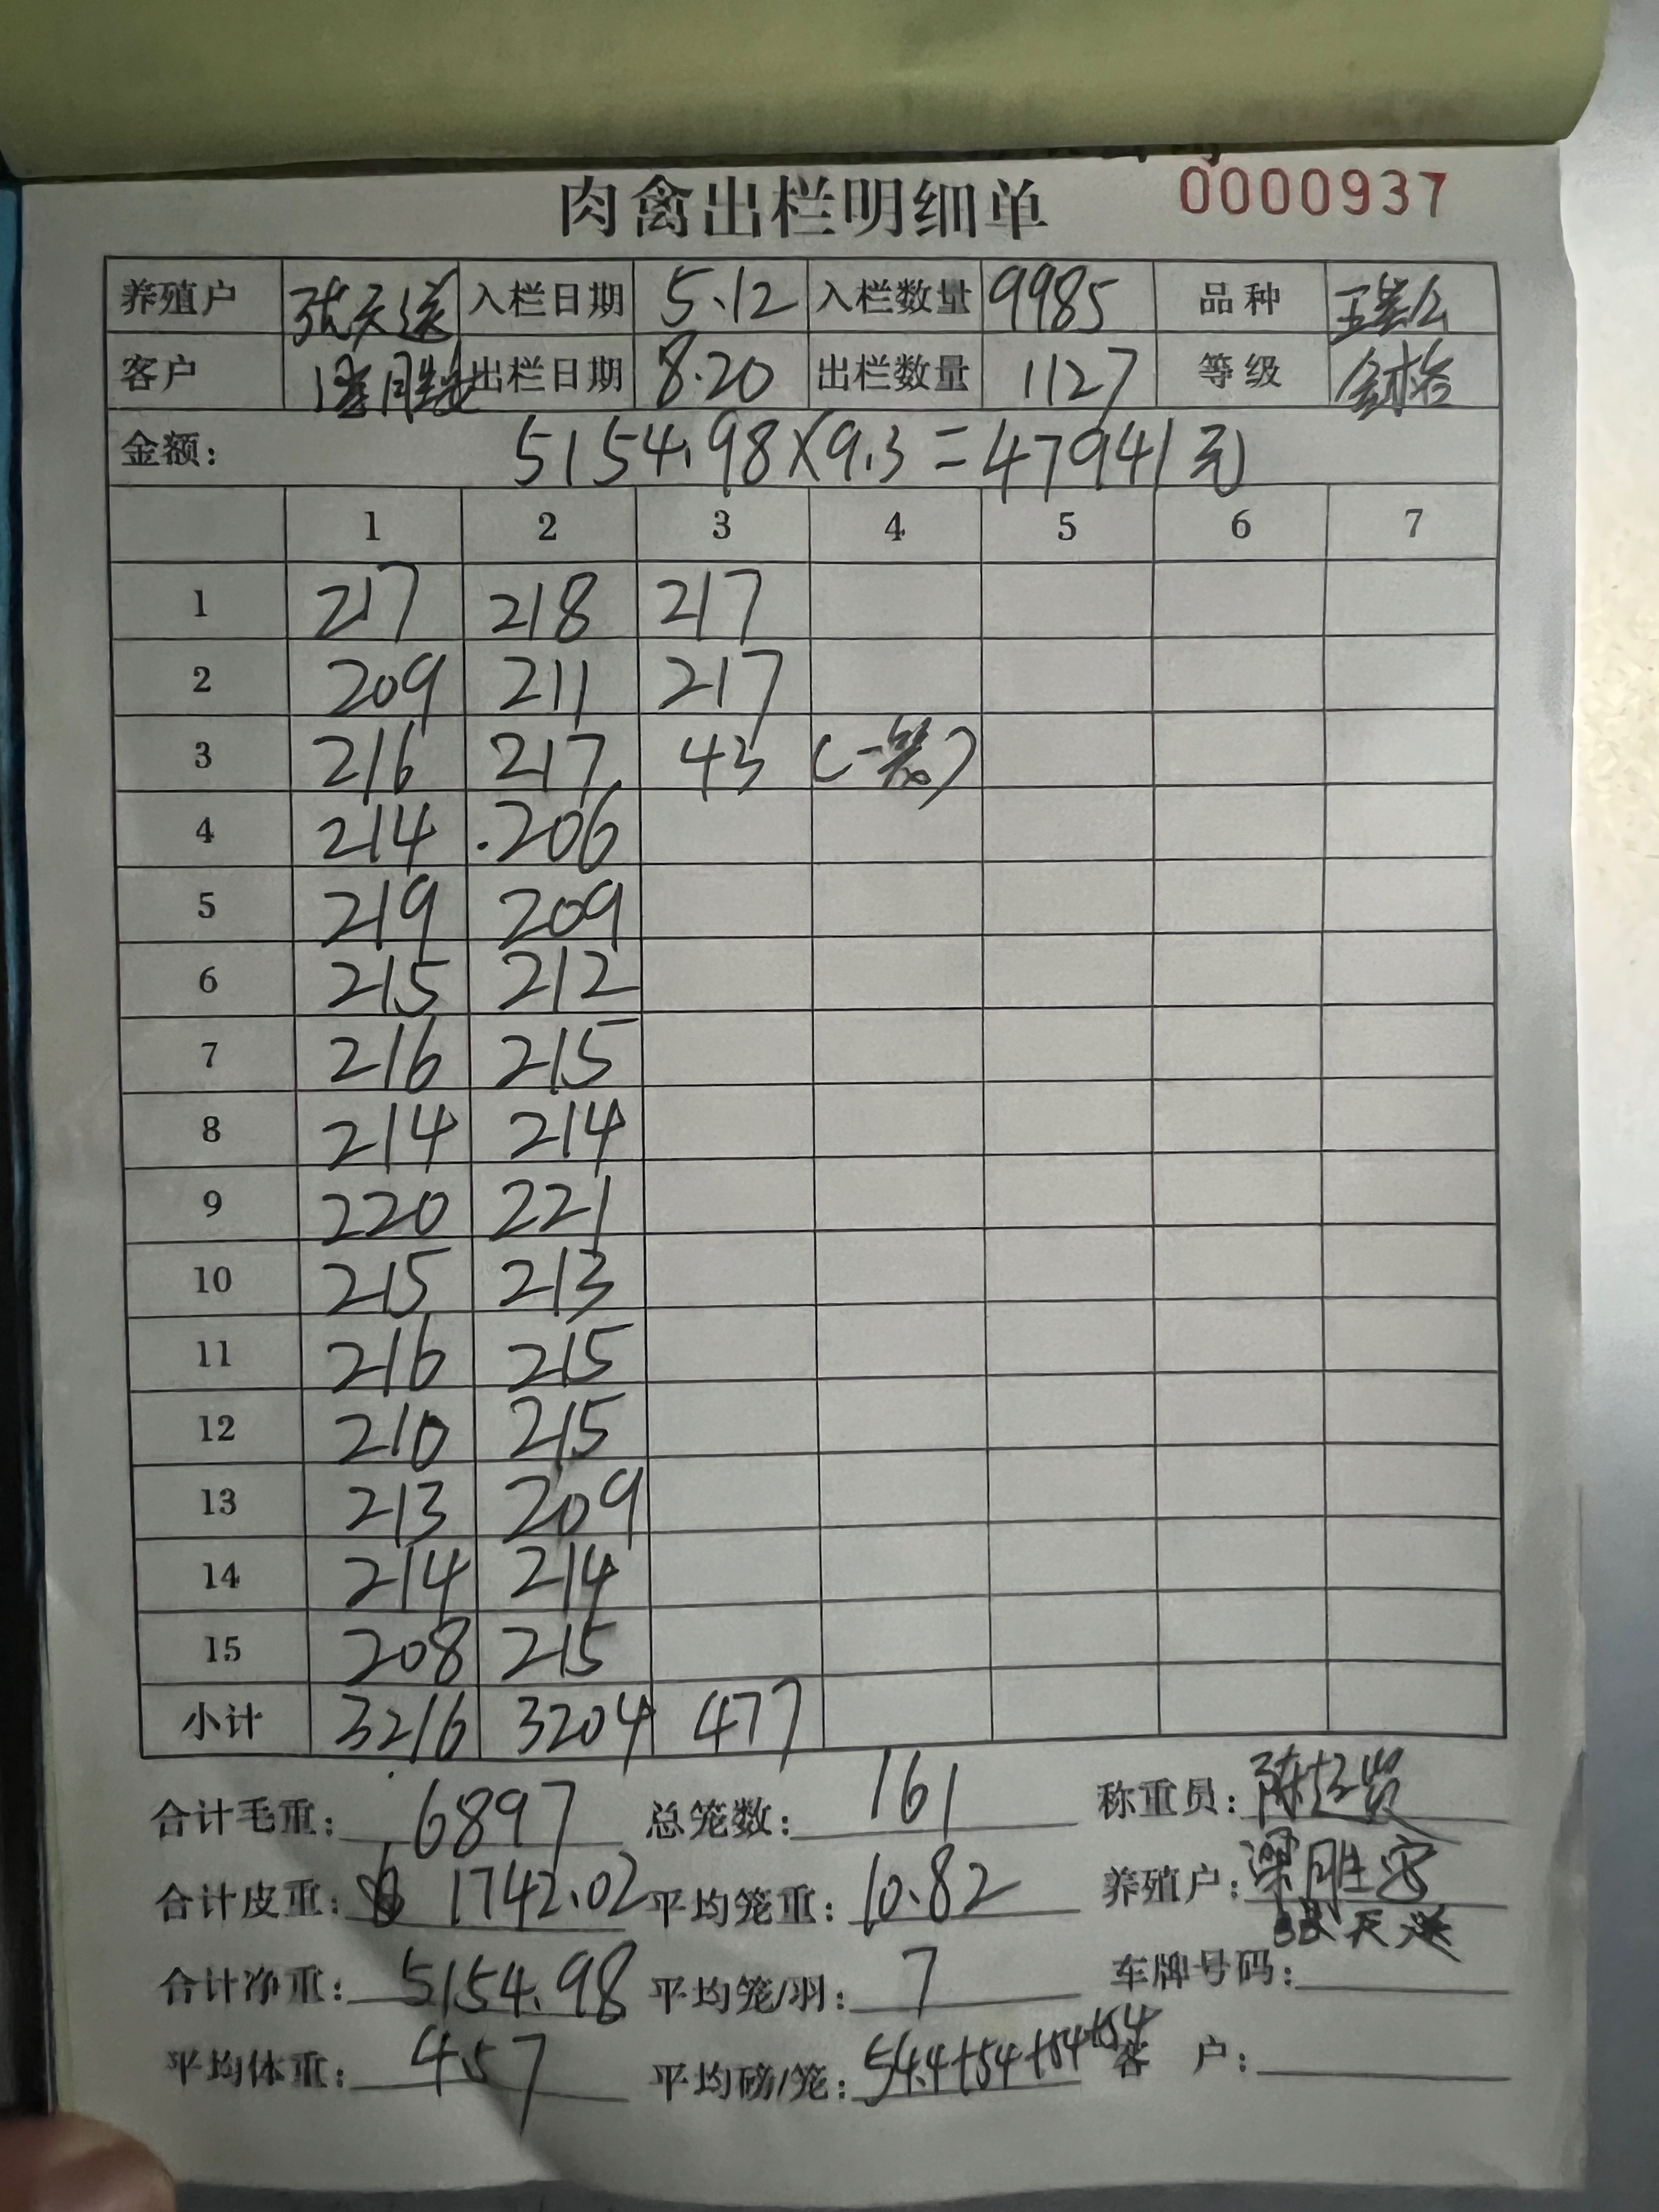 肉禽出栏明细单 0000937
养殖户 张天送 入栏日期 5.12 入栏数量 9985 品种
客户 梁胜安 出栏日期 8.20 出栏数量 1127 等级
金额: 5154.98×9.3=47941元
1 2 3 4 5 6 7
1 217 218 217
2 209 211 217
3 216 217 43 (一笼)
4 214 206
5 219 209
6 215 212
7 216 215
8 214 214
9 220 221
10 215 213
11 216 215
12 210 215
13 213 209
14 214 214
15 208 215
小计 3216 3204 477
合计毛重: 6897 总笼数: 161 称重员:
合计皮重: 1742.02 平均笼重: 10.82 养殖户: 梁胜安
张天送
合计净重: 5154.98 平均笼/羽: 7 车牌号码:
平均体重: 4.57 平均磅/笼: 54.4+54+54+54 客户: